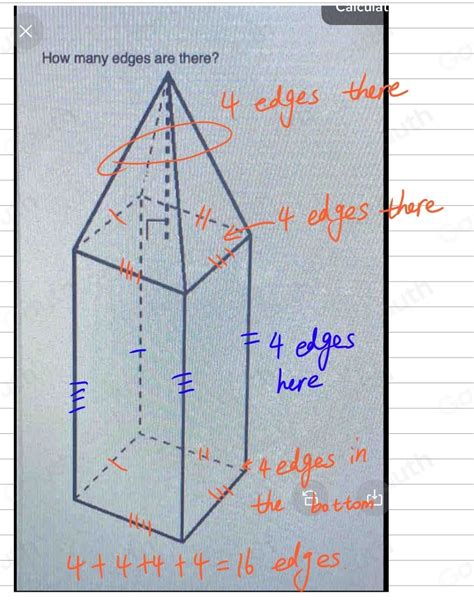 Calculat
How many edges are there?
4 edges there
4 edges there
4 edges
here
4 edges in
the bottom
4+4+4+4=16 edges